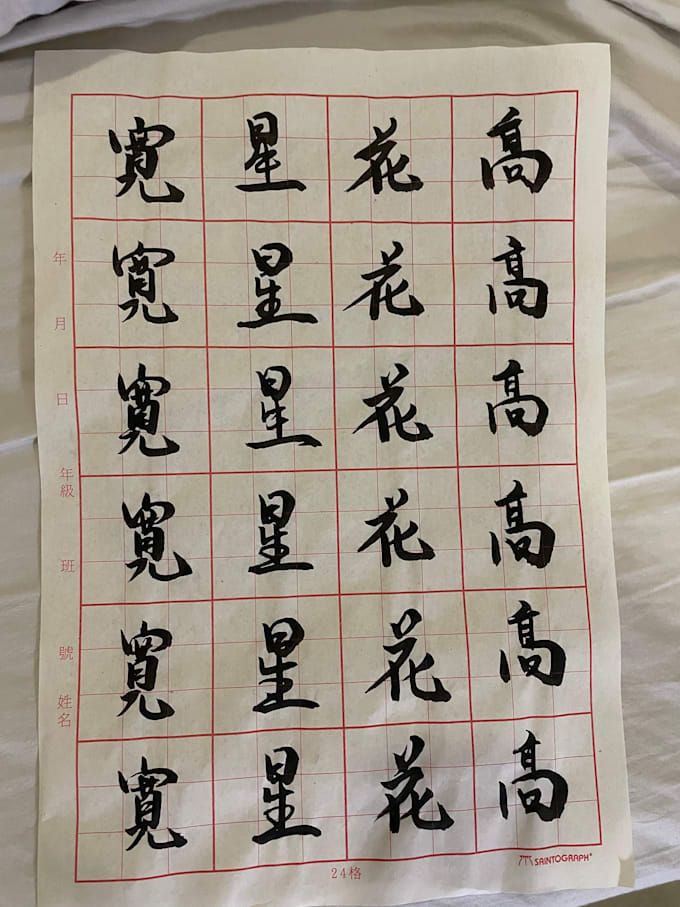 高高高高高高
花花花花花花
星星星星星星
寬寬寬寬寬寬
年 月 日 年級 班 號 姓名
24格
SAINTOGRAPH®